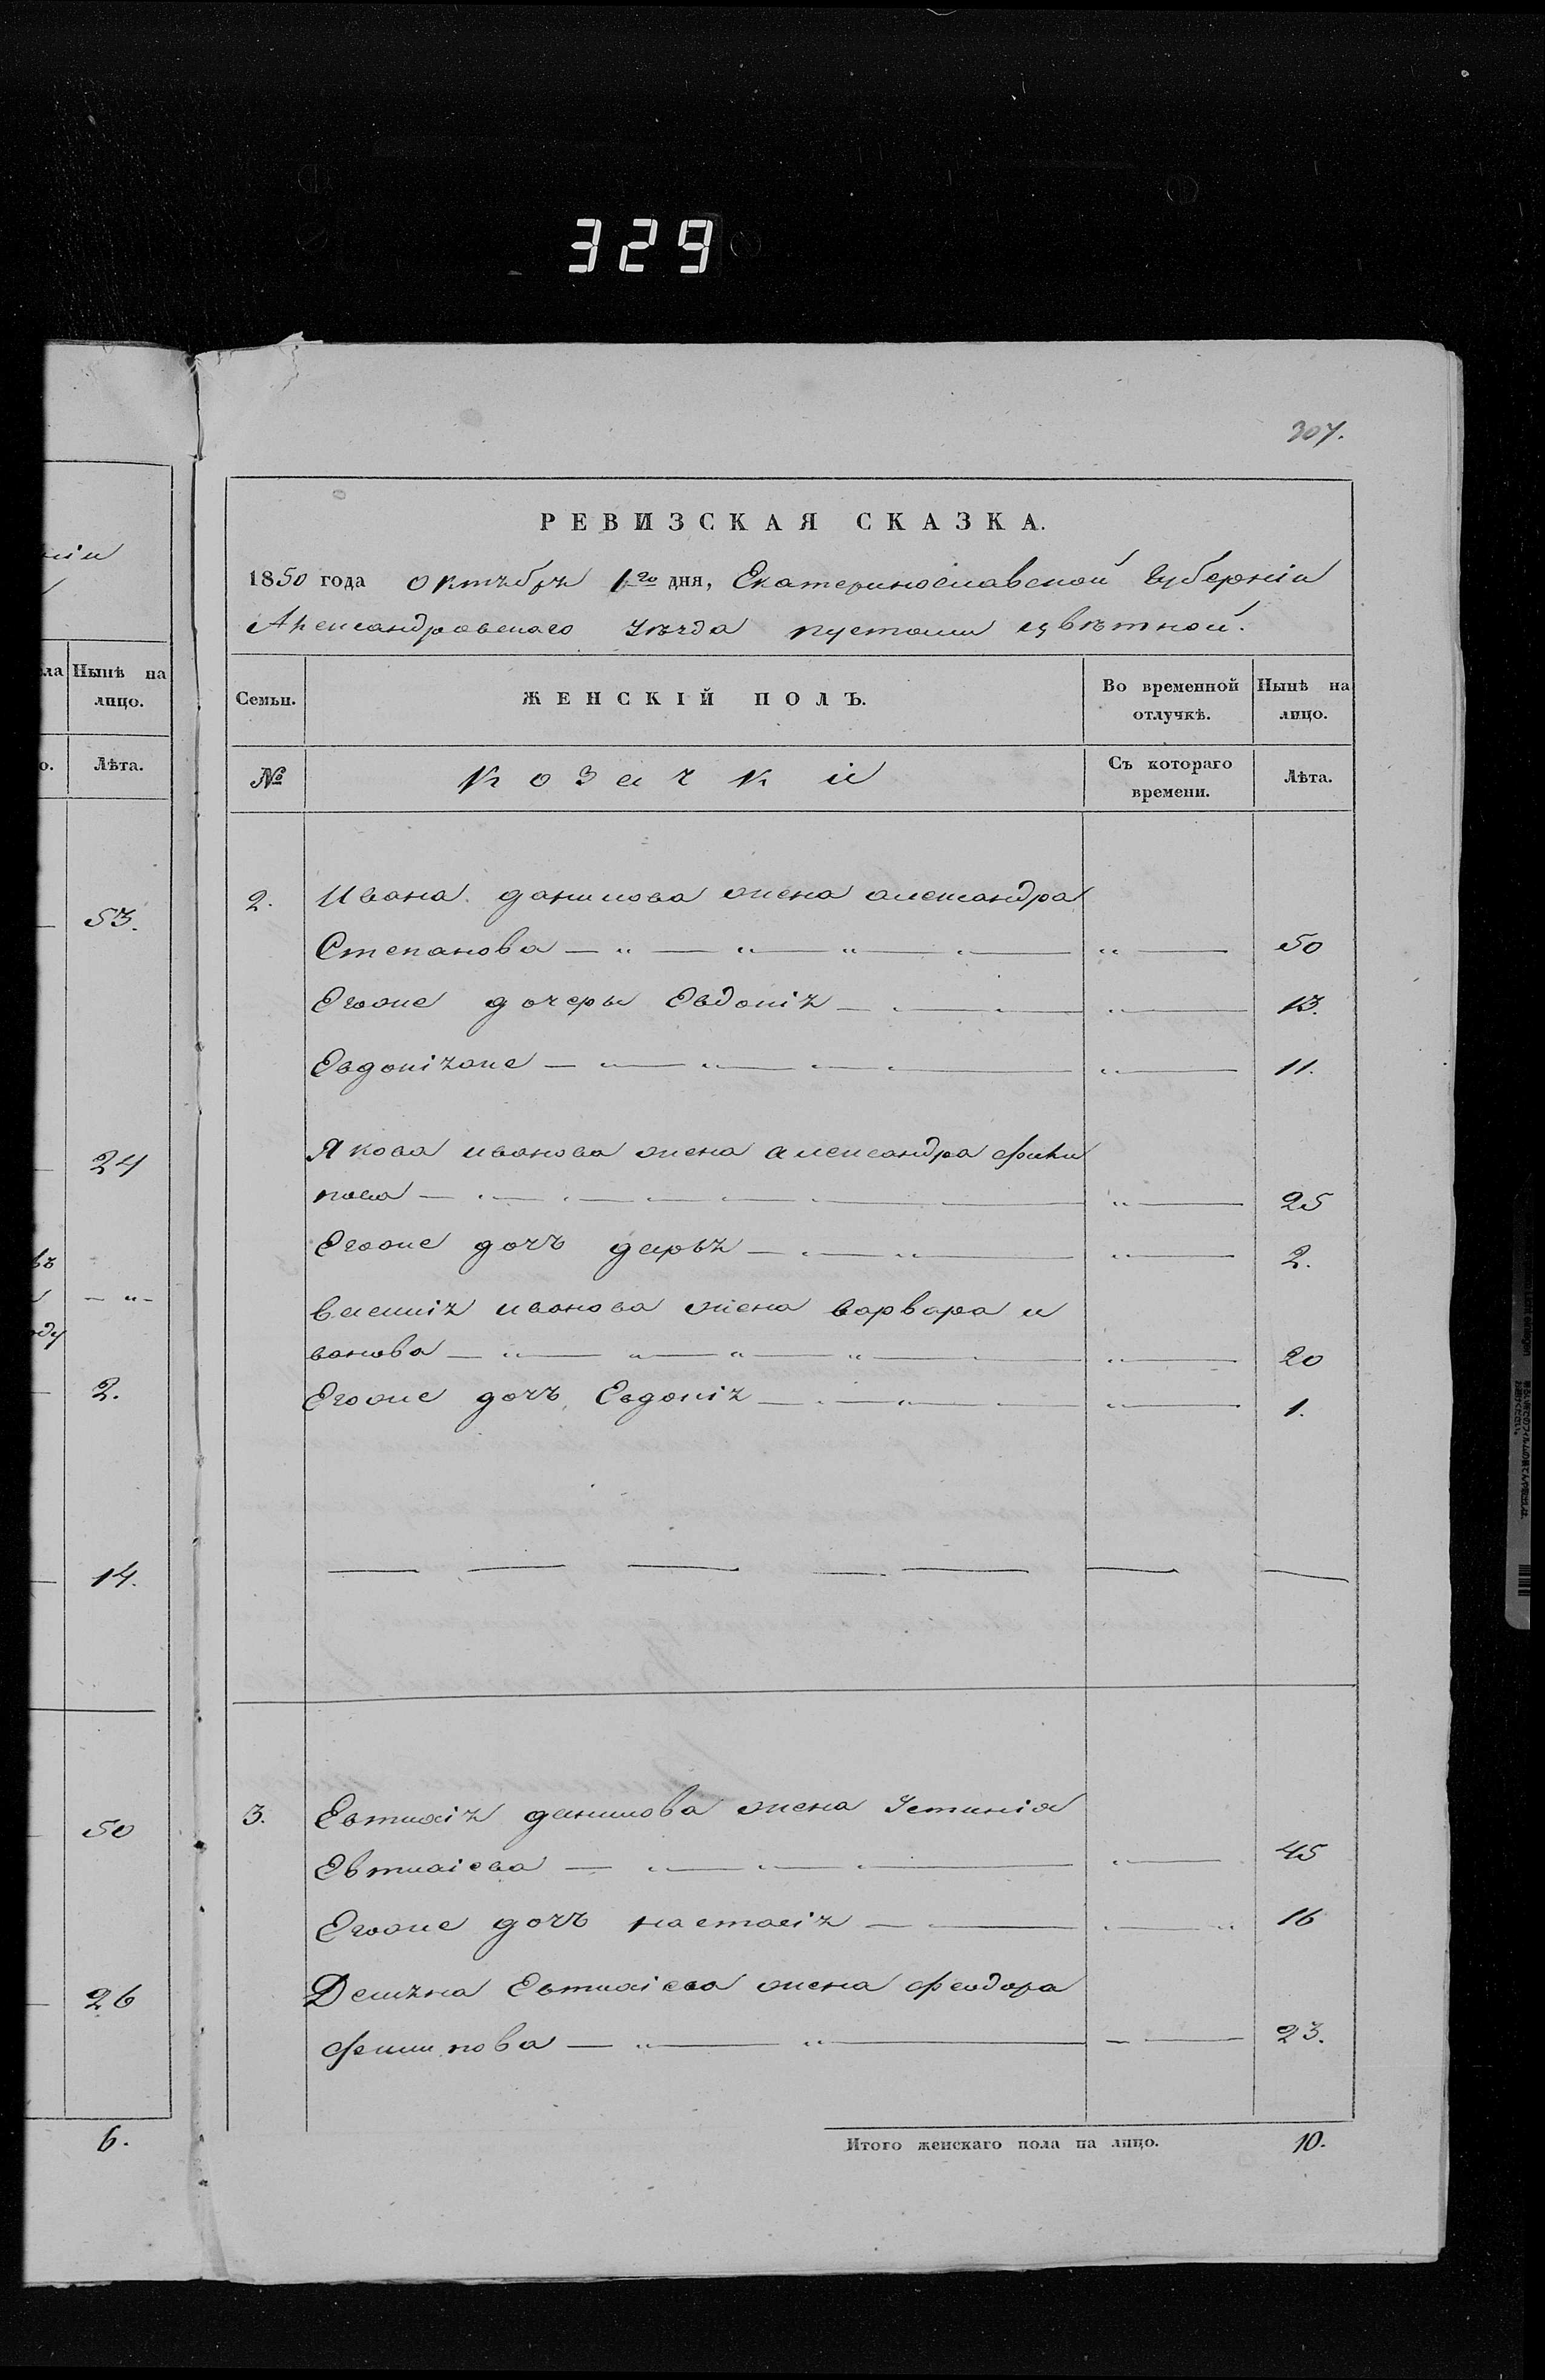 329
307.
РЕВИЗСКАЯ СКАЗКА.
1850 года октября 1го дня, Екатеринославской Губерніи
Александровскаго уезда пустоши цвѣтной.
ніи
ла Нынѣ на лицо.
о. Лѣта.
53.
24
въ
— „ —
оду
2.
14.
50
26
6.
Семьи. ЖЕНСКІЙ ПОЛЪ. Во временной отлучкѣ. Нынѣ на лицо.
№ Козачки Съ котораго времени. Лѣта.
2. Ивана данилова жена александра
Степанова — „ — „ — „ — „ — „ — 50
Егоже дочеры Евдокія — „ — „ — „ — 13.
Евдокіяже — „ — „ — „ — „ — „ — 11.
Якова иванова жена александра фили
пова — „ — „ — „ — „ — 25
Егоже дочь дарья — „ — „ — „ — 2.
василія иванова жена варвара и
ванова — „ — „ — „ — „ — „ — 20
Егоже дочь Евдокія — „ — „ — „ — 1.
3. Евтихія данилова жена Устинія
Евтихіева — „ — „ — „ — „ — 45
Егоже дочь настасія — „ — „ — „ 16
Демяна Евтихіева жена феодора
филипова — „ — „ — — 23.
Итого женскаго пола на лицо. 10.